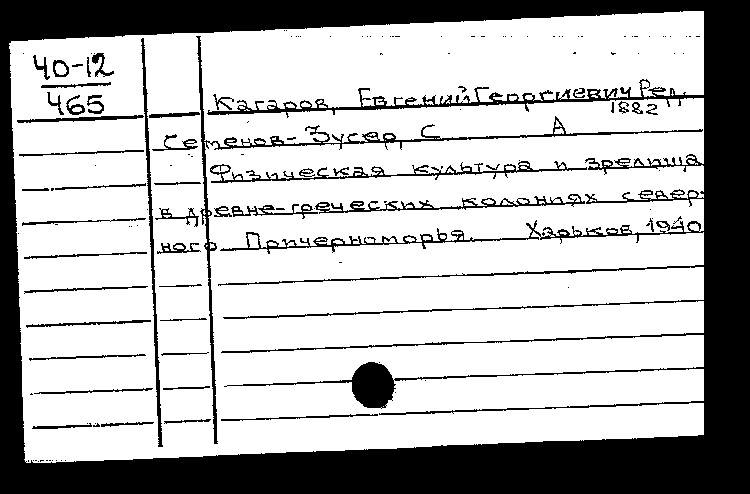 40-12
465
Кагаров, Евгений Георгиевич Ред.
1882
Семенов-Зусер, С А
Физическая культура и зрелища
в древне-греческих колониях север-
ного Причерноморья. Харьков, 1940